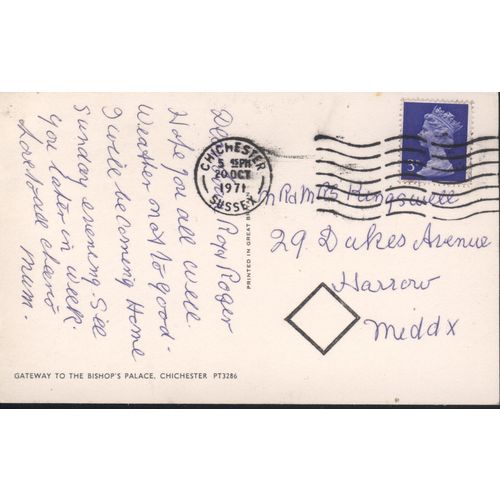 Dear Roy Roger
Hope you all well.
Weather on not to good-
I will be coming Home
Sunday evening. See
you later in week.
Love to all chers
Mum.
CHICHESTER
5 15PM
20 OCT
1971
SUSSEX
Mr and Mrs Kingswell
29 Dukes Avenue
Harrow
Middx
PRINTED IN GREAT
GATEWAY TO THE BISHOP'S PALACE, CHICHESTER PT3286